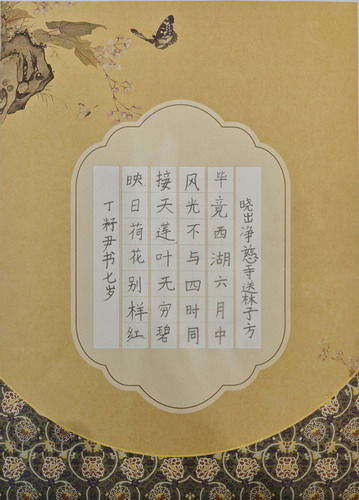 晓出净慈寺送林子方
毕竟西湖六月中
风光不与四时同
接天莲叶无穷碧
映日荷花别样红
丁籽尹书七岁